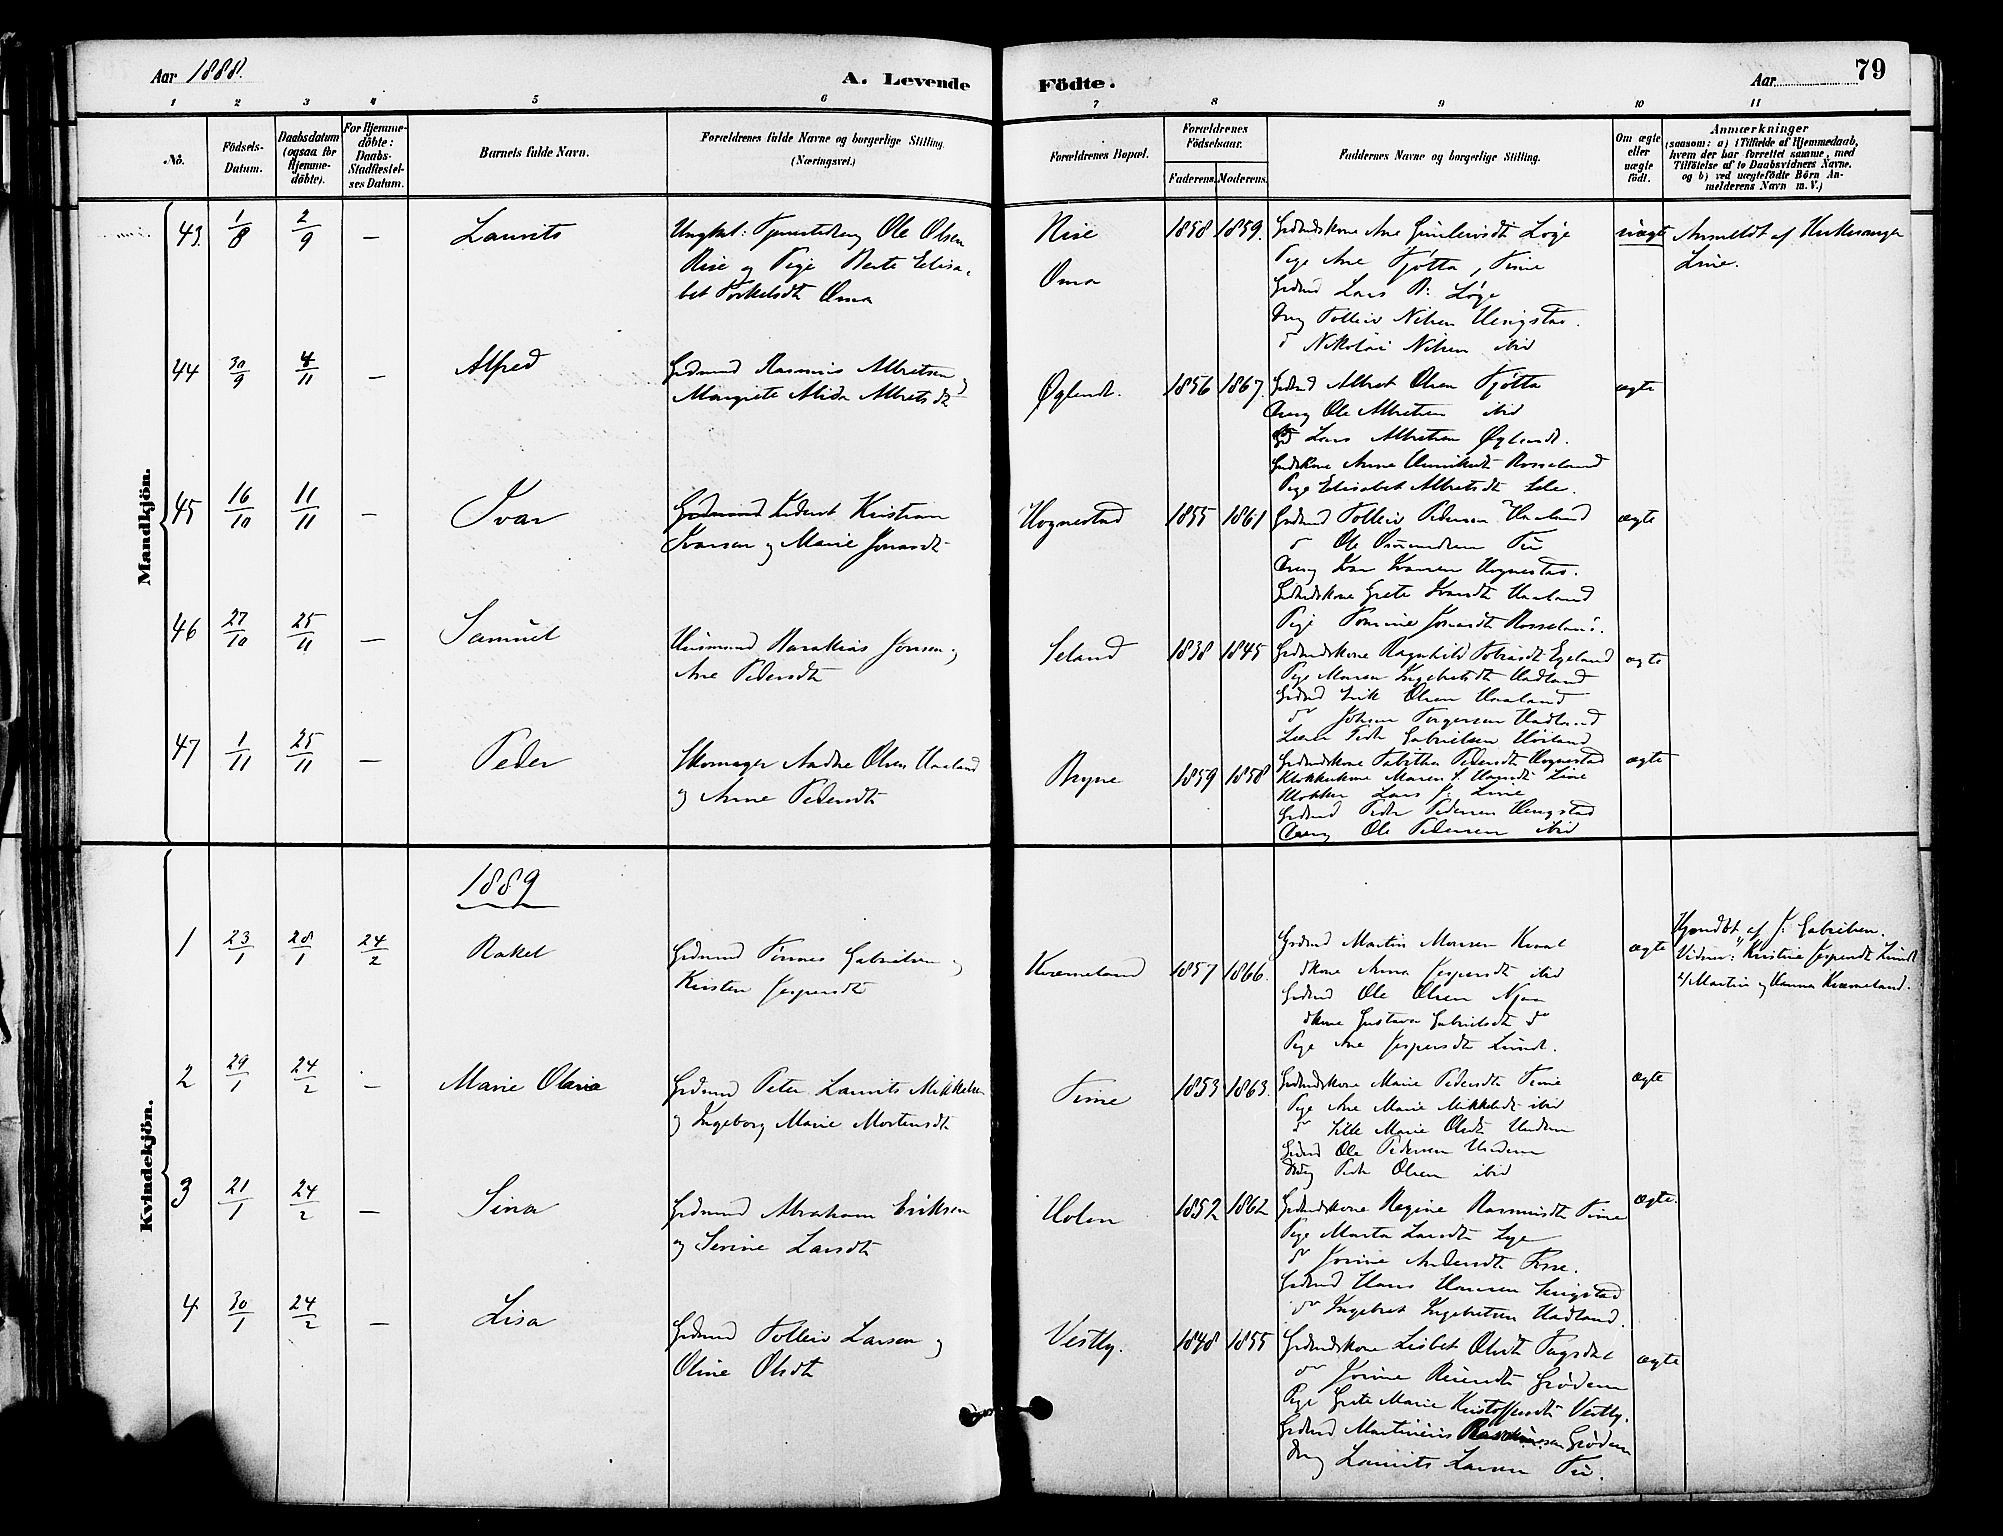 Aar 1888.
A. Levende
Födte.
Aar
79
1 2 3 4 5 6 7 8 9 10 11
No.
Födsels-
Datum.
Daabsdatum
(ogsaa for
Hjemme-
döbte).
For Hjemme-
döbte:
Daabs-
Stadfæstel-
ses Datum.
Barnets fulde Navn.
Forældrenes fulde Navne og borgerlige Stilling.
(Næringsvei.)
Forældrenes Bopæl.
Forældrenes
Födselsaar.
Faderens. Moderens.
Faddernes Navne og borgerlige Stilling.
Om ægte
eller
uægte
født.
Anmærkninger
(saasom: a) i Tilfælde af Hjemmedaab,
hvem der har forrettet samme, med
Tilføielse af to Daabsvidners Navne.
og b) ved uægtefødte Börn An-
melderens Navn m. V.)
Mandkjön.
43. 1/8 2/9 — Laurits
Ungkal: Tjenestedreng Ole Olsen
Rise og Pige Berte Elisa-
bet Torkelsdt Oma
Rise
Oma
1858 1859.
Grdmdskone Ane Gunleivsdt Løge
Pige Ane Tjøtta, Time
Grdmd Lars B: Løge
Ung Tolleiv Nilsen Hengstad.
do Nikolai Nilsen ibid
uægte
Anmeldt af Kirkesanger
Line.
44 30/9 4/11 — Alfred
Grdmand Rasmus Albretsen og
Margrete Alida Albretsdt
Øglend.
1856 1867.
Grdmd Albret Olsen Tjøtta
Ung Ole Albretsen ibid
Lars Albretsen Øglend.
Grdskone Anne Henriksdt Rosseland
Pige Elisabet Albretsdt Lele.
ægte
45 16/10 11/11 — Ivar
Grdmand Lidert Kristian
Ivarsen og Marie Jonasdt
Hognestad
1855 1861
Grdmd Tolleiv Pedersen Haaland
do Ole Osmundsen Tu
Ung Ivar Ivarsen Hognestad.
Grdmdskone Grete Ivarsdt Haaland
Pige Tomine Jonasdt Rosseland.
ægte
46 27/10 25/11 — Samuel
Husmand Barakias Jonsen og
Ane Pedersdt
Seland
1838 1845
Grdmdskone Ragnhild Tobiasdt Egeland
Pige Maren Ingebretsdt Hadland
Grdmd Erik Olsen Haaland
do Johan Torgersen Hadland
Peder Gabrielsen Høiland
ægte
47 1/11 25/11 — Peder
Skomager Andre Olsen Haaland
og Anne Pedersdt
Bryne
1859 1858
Grdmdskone Tabitha Pedersdt Hognestad
Klokkerkone Maren S. Line
Klokker Lars J: Line
Grdmd Peder Pedersen Hengstad
Ung Ole Pedersen ibid
ægte
1889
Kvindekjön.
1 23/1 28/1 24/2 Rakel
Grdmd Tønnes Gabrielsen og
Kirsten Jespersdt
Kverneland
1857 1866.
Grdmd Martin Monsen Kvaal
dskone Anna Jespersdt ibid
Grdmd Ole Olsen Njaa
dskone Gustava Gabrielsdt do
Pige Ane Jespersdt Lunde.
ægte
Hjemdbt af J: Gabrielsen.
Vidner: 1) Kristine Jespersdt Lunde
2) Martin og Hanna Kverneland.
2 29/1 24/2 — Marie Olavia
Grdmd Peter Laurits Mikkelsen
og Ingeborg Marie Mortensdt
Time
1853 1863.
Grdmdskone Marie Pedersdt Time
Pige Ane Marie Mikkelsdt ibid
do Lille Marie Olsdt Undem
Grdmd Ole Pedersen Undem
Ung Peder Olsen ibid
ægte
3 21/1 24/2 — Sina
Grdmd Abraham Eriksen
og Serine Larsdt
Holen
1852 1862
Grdmdskone Regine Rasmusdt Time
Pige Marta Larsdt Lye
do Jorine Andersdt Fosse.
Grdmd Hans Hansen Lengstad
do Ingebret Ingebretsen Hadland.
ægte.
4 30/1 24/2 — Lisa
Grdmd Tolleiv Larsen og
Oline Olsdt
Vestly.
1848 1855
Grdmdskone Lisbet Olsdt Fagsdal
do Jorine Reiersdt Grødem
Pige Grete Marie Kristoffersdt Vestly.
Grdmd Martinius Rasmussen Grødem
Ung Laurits Larsen Tu.
ægte